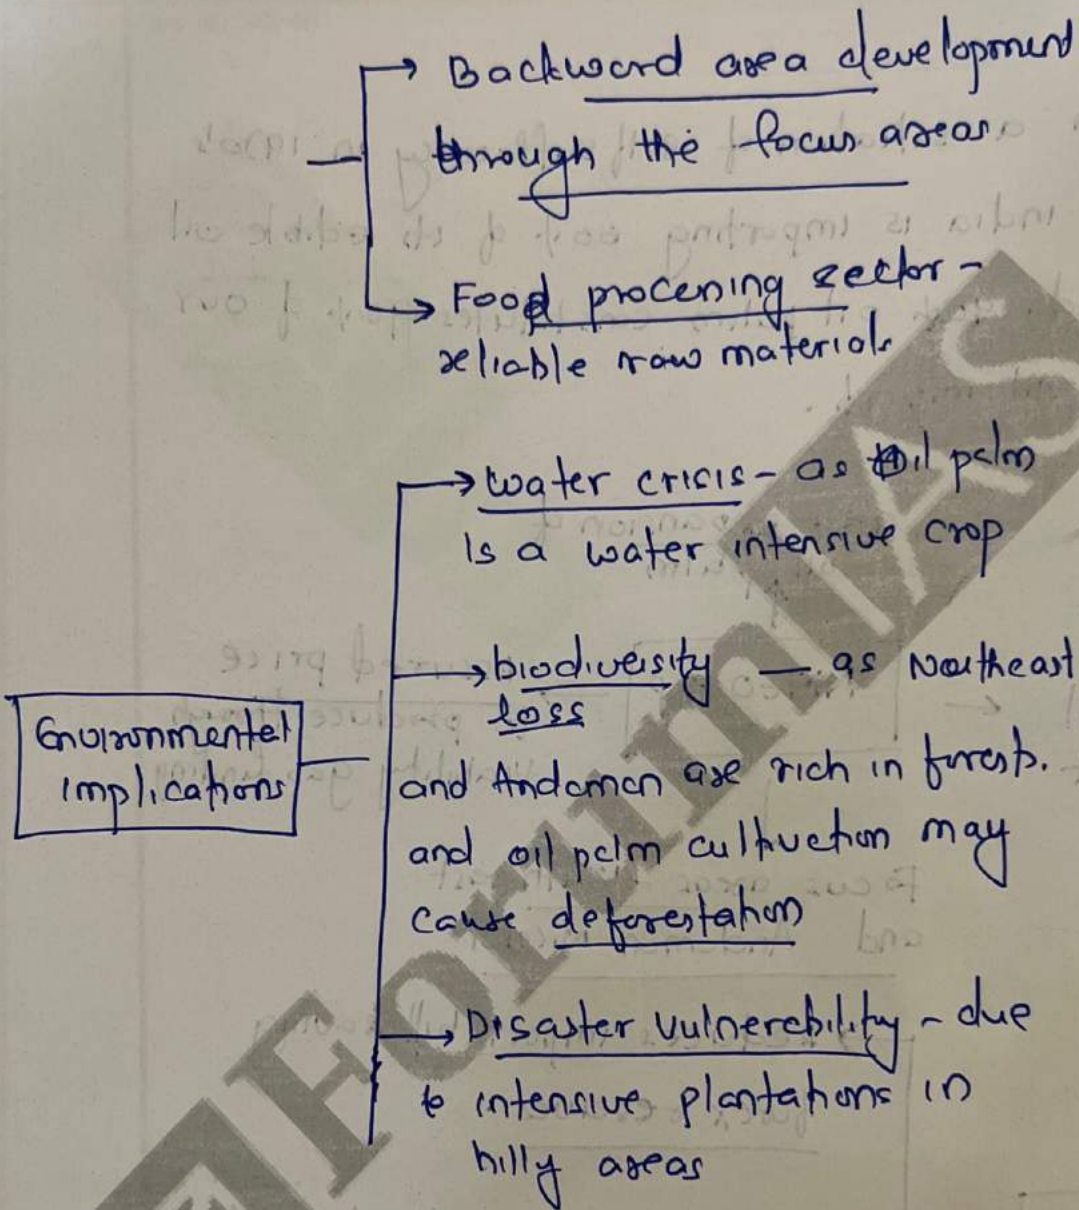 Backward area development
through the focus areas
Food processing sector -
reliable raw materials
Water crisis - as oil palm
is a water intensive crop
biodiversity — as Northeast
loss
Environmental
implications
and Andaman are rich in forests.
and oil palm cultivation may
cause deforestation
Disaster vulnerability - due
to intensive plantations in
hilly areas
ForumIAS